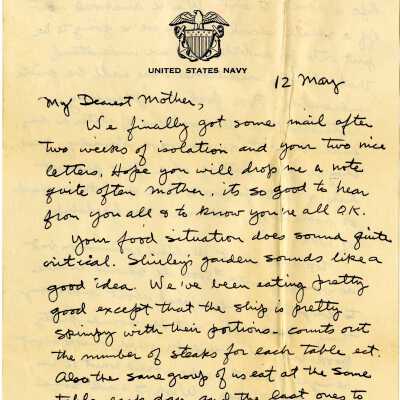 UNITED STATES NAVY
12 May
My Dearest Mother,
We finally got some mail after
two weeks of isolation and your two nice
letters. Hope you will drop me a note
quite often mother, its so good to hear
from you all & to know you're all O.K.
Your food situation does sound quite
critical. Shirley's garden sounds like a
good idea. We've been eating pretty
good except that the ship is pretty
skimpy with their portions - counts out
the number of steaks for each table ect.
Also the same group of us eat at the same
table each day and the last ones to